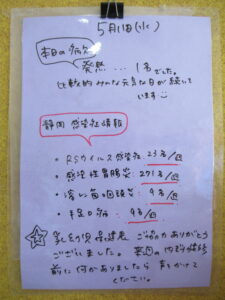 5月11日(水)
本日の病欠
発熱...1名でした。
比較的みんな元気な日が続いて
います
静岡 感染症情報
・RSウイルス感染症 23名/週
・感染性胃腸炎 271名/週
・溶レン菌咽頭炎 9名/週
・手足口病 4名/週
乳幼児保健表 ご協力ありがとう
ございました。来週の内科健診
前に何かありましたら声をかけて
ください。